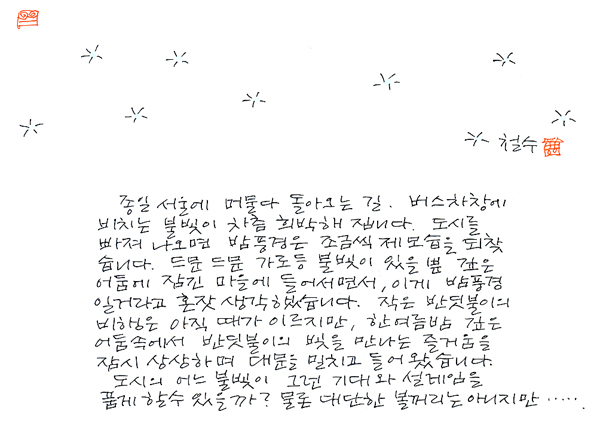 철수
종일 서울에 머물다 돌아오는 길. 버스차창에
비치는 불빛이 차츰 희박해 집니다. 도시를
빠져 나오면 밤풍경은 조금씩 제모습을 되찾
습니다. 드문 드문 가로등 불빛이 있을 뿐 깊은
어둠에 잠긴 마을에 들어서면서, 이게 밤풍경
일거라고 혼잣 생각했습니다. 작은 반딧불이의
비행은 아직 때가 이르지만, 한여름밤 깊은
어둠속에서 반딧불이의 빛을 만나는 즐거움을
잠시 상상하며 대문을 밀치고 들어 왔습니다.
도시의 어느 불빛이 그런 기대와 설레임을
품게 할수 있을까? 물론 대단한 볼꺼리는 아니지만 .....